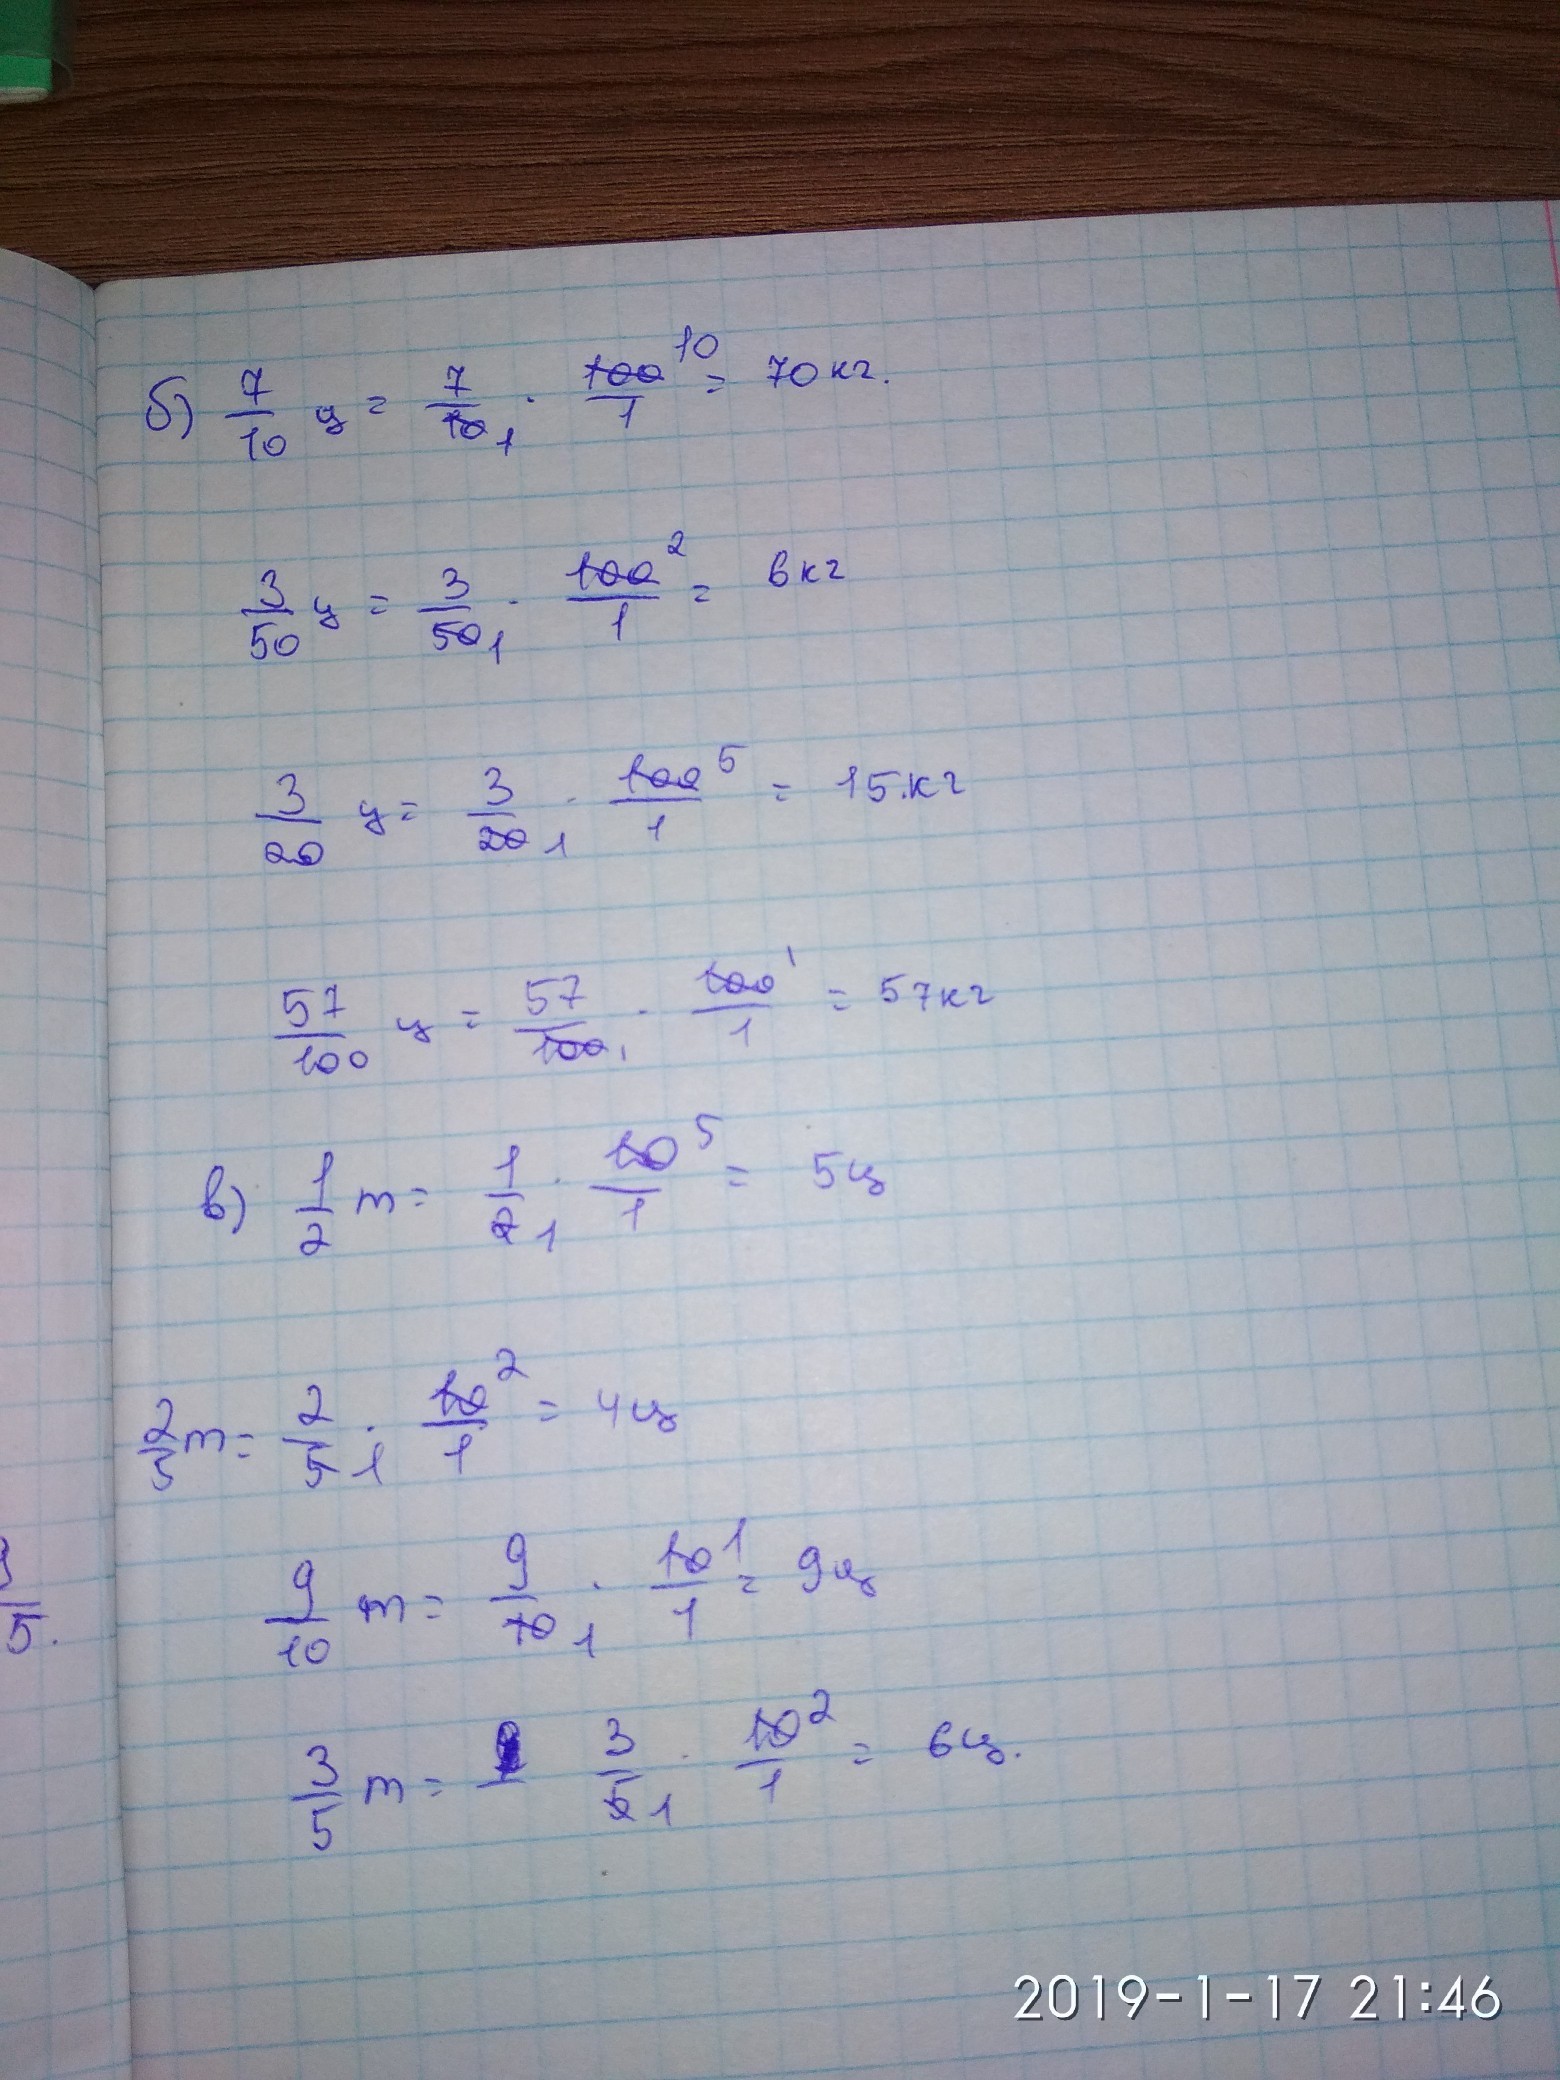 б) 7/10 ц = 7/10 1 · 100 10/1 = 70 кг.
3/50 ц = 3/50 1 · 100 2/1 = 6 кг
3/20 ц = 3/20 1 · 100 5/1 = 15.кг
57/100 ц = 57/100 1 · 100 1/1 = 57 кг
в) 1/2 т = 1/2 1 · 10 5/1 = 5 ц
2/5 т = 2/5 1 · 10 2/1 = 4 ц
9/10 т = 9/10 1 · 10 1/1 = 9 ц
5.
3/5 т = 3/5 1 · 10 2/1 = 6 ц.
2019-1-17 21:46